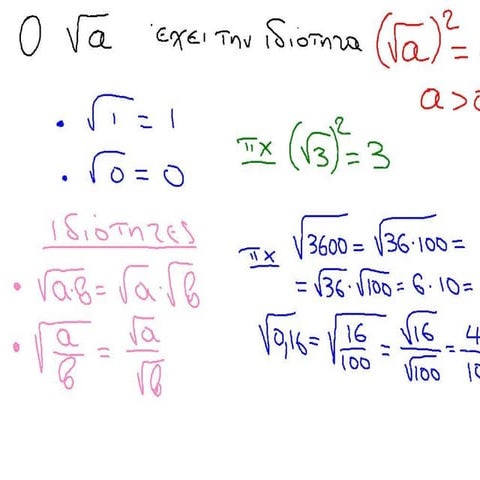 Ο √α έχει την ιδιότητα (√α)² =
α >
• √1 = 1
• √0 = 0
πχ (√3)² = 3
ιδιότητες
• √α·β = √α·√β
• √α/β = √α/√β
πχ √3600 = √36·100 =
= √36·√100 = 6·10 =
√0,16 = √16/100 = √16/√100 = 4/10